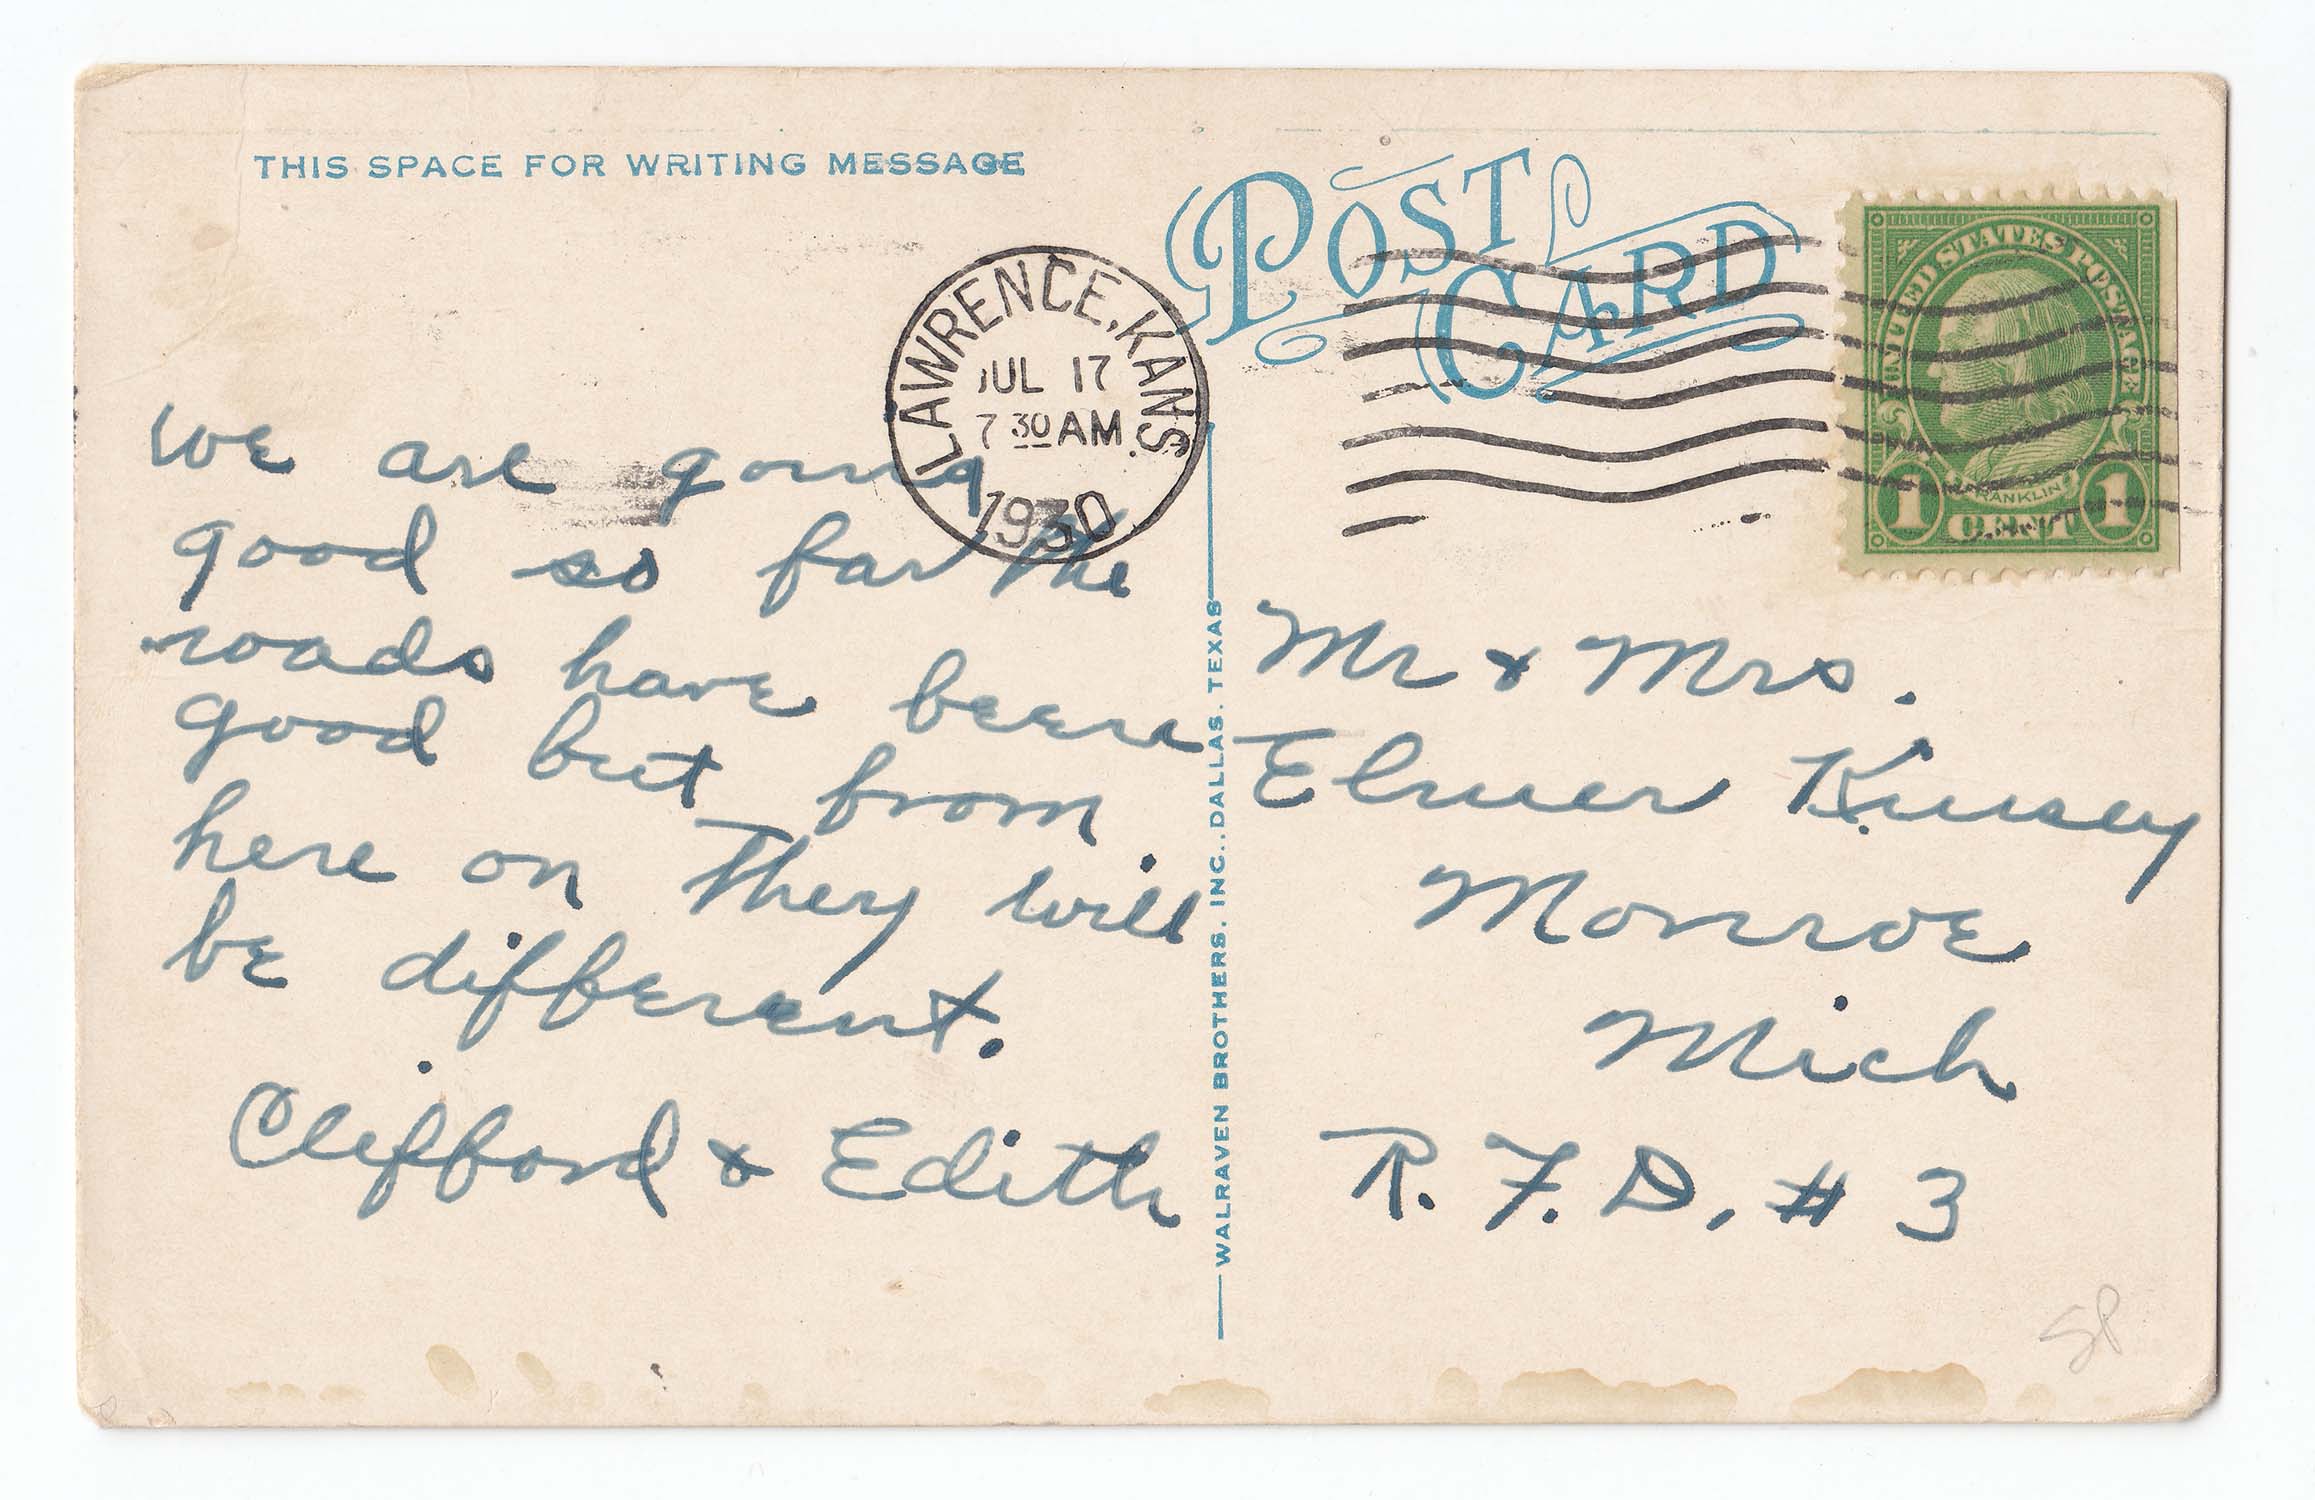 THIS SPACE FOR WRITING MESSAGE
POST CARD
LAWRENCE, KANS.
JUL 17
7 30 AM
1930
UNITED STATES POSTAGE
FRANKLIN
1 CENT 1
we are going
good so far the
roads have been
good but from
here on They will
be different.
Clifford & Edith
WALRAVEN BROTHERS, INC., DALLAS, TEXAS
Mr & Mrs.
Elmer Kinsey
Monroe
Mich
R. F. D. # 3